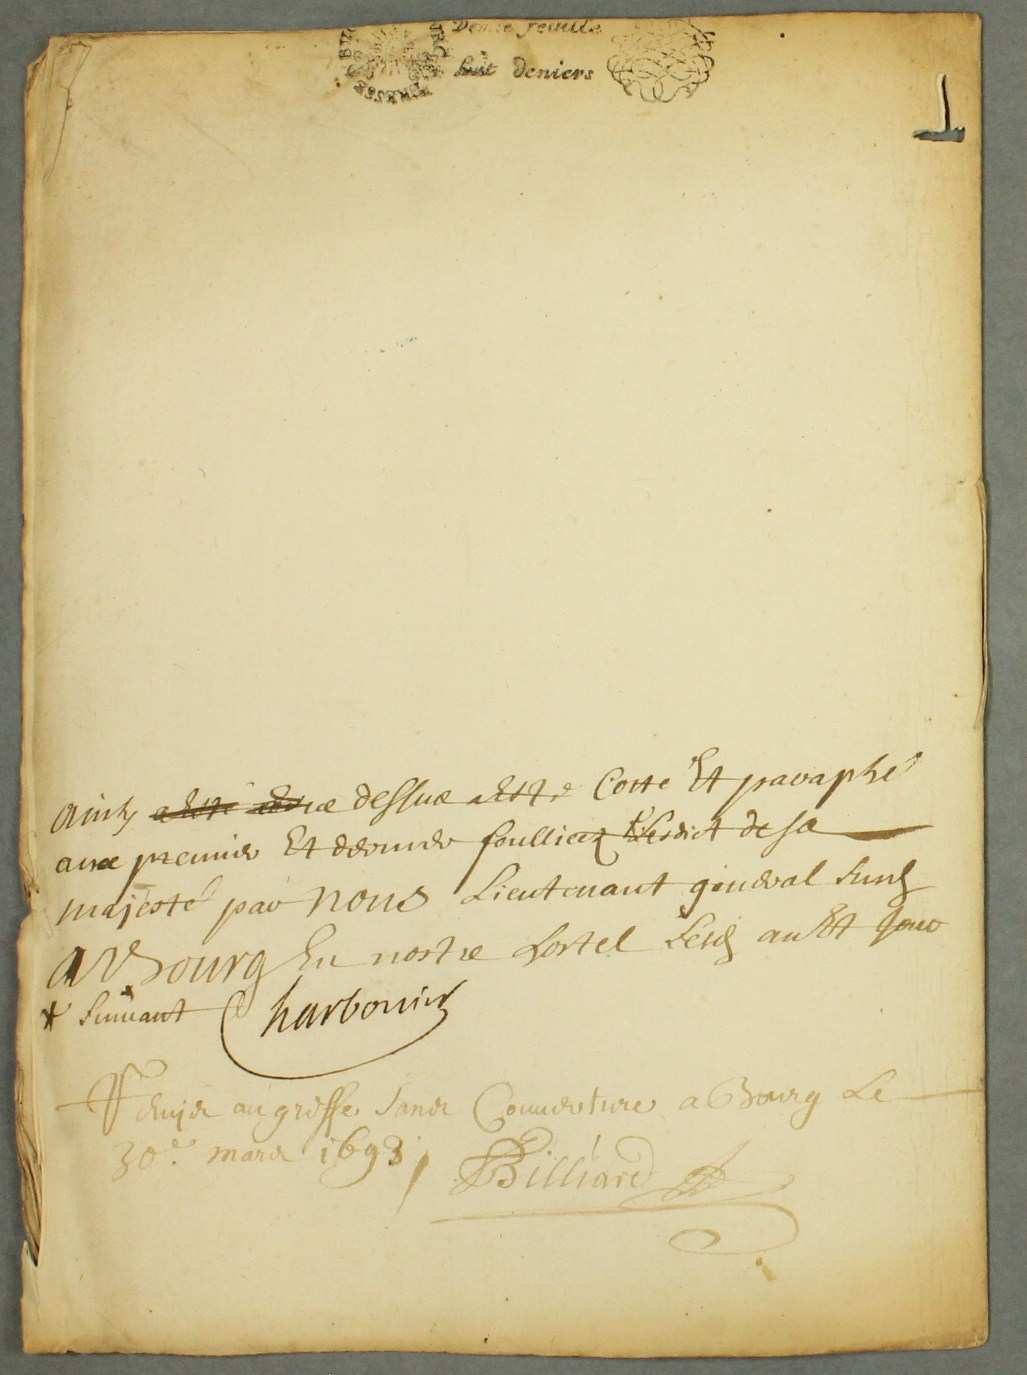 Demie feuille
huit deniers
Ainsy dessus a esté Cotte Et paraphé
aux premier Et dernier foulliez de sa
majesté par Nous Lieutenant general
A Bourg En nostre hostel an Et Jour
suivant Charbonnier
au greffe sans Couverture a Bourg Le
30e. mars 1693
Billiard